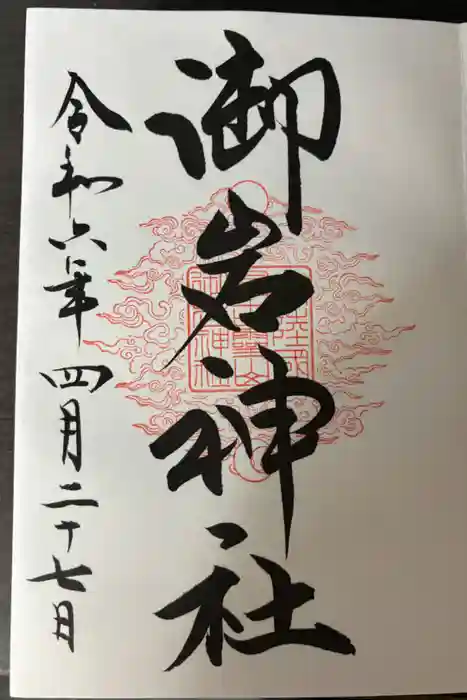 御岩神社
令和六年四月二十七日